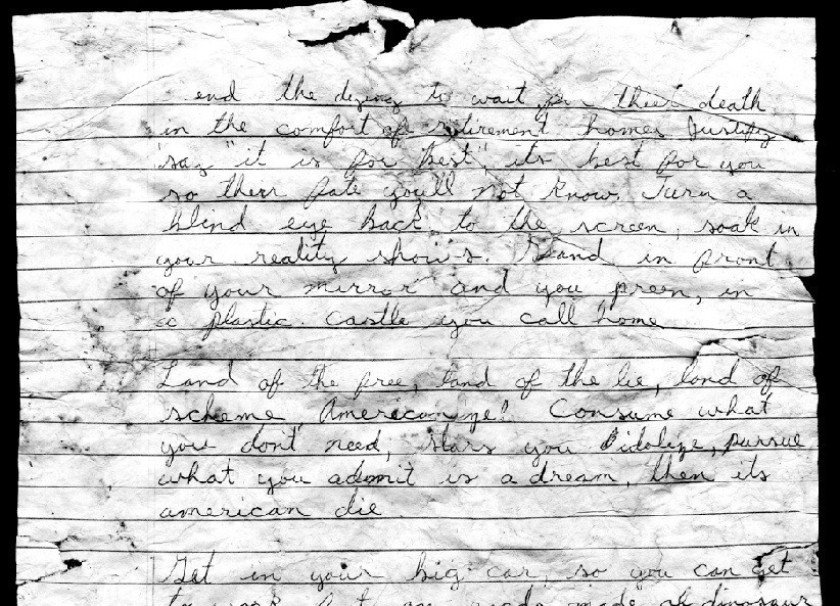 end the dying to wait for their death
in the comfort of retirement homes. Justify
say "it is for best" its best for you
so their fate you'll not know. Turn a
blind eye back to the screen, soak in
your reality shows. Stand in front
of your mirror and you preen, in
a plastic castle you call home
Land of the free, land of the lie, land of
scheme, Americanize! Consume what
you don't need, stars you idolize, pursue
what you admit is a dream, then its
american die
Get in your big car, so you can get
to work fast on roads made of dinosaur